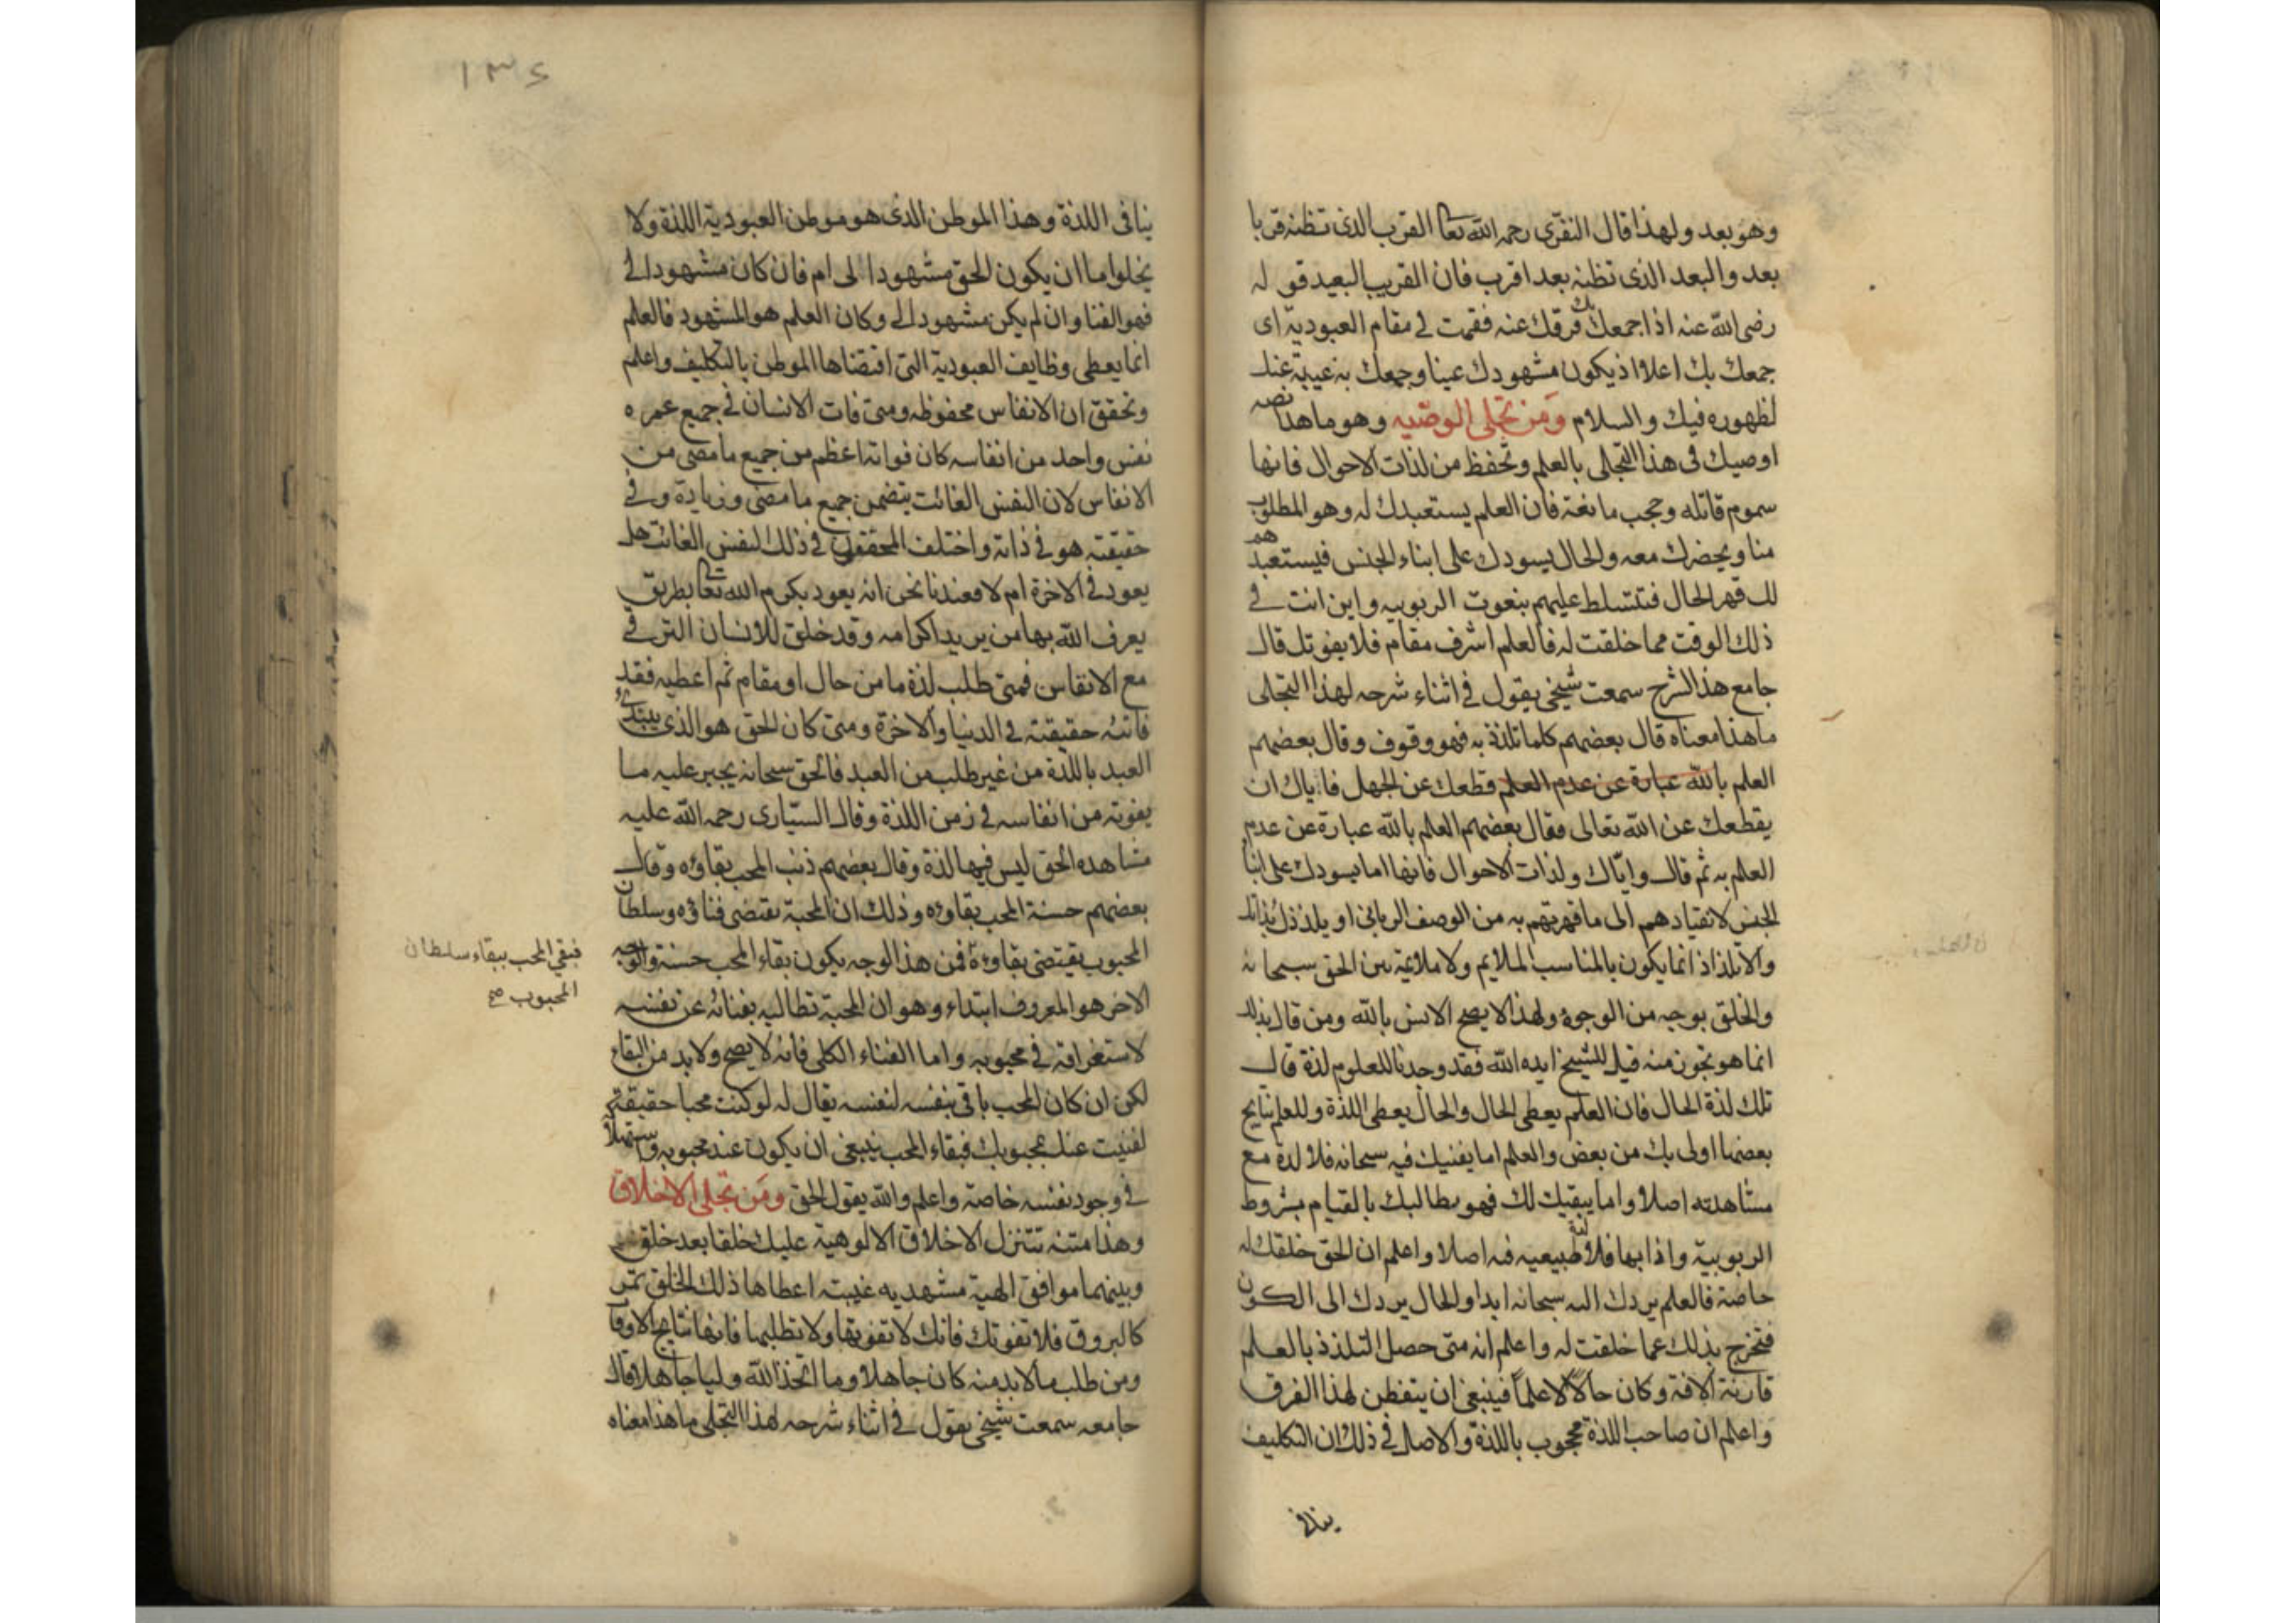 وهو بعد ولهذا قال النفرى رحمه الله تعا القرب الذى تظنه قربا
بعد والبعد الذى تظنه بعد اقرب فان القريب البعيد قوله
رضى الله عنه اذا جمعك بك فرقك عنه فقمت فى مقام العبودية اى
جمعك بك اعلا اذ يكون مشهودك عينا وجمعك به غيبة عنك
لظهوره فيك والسلام ومن تجلى الوصيه وهو ما هذا نصه
اوصيك فى هذا التجلى بالعلم وتحفظ من لذات الاحوال فانها
سموم قاتله وحجب مانعة فان العلم يستعبدك له وهو المطلوب
منا ويحضرك معه والحال يسودك على ابناء الجنس فيستعبدهم
لك قهر الحال فتتسلط عليهم بنعوت الربوبيه واين انت فى
ذلك الوقت مما خلقت له فالعلم اشرف مقام فلا يفوتك قال
جامع هذا الشرح سمعت شيخى يقول فى اثناء شرحه لهذا التجلى
ما هذا معناه قال بعضهم كلما تلذذ به فهو وقوف وقال بعضهم
العلم بالله عبارة عن عدم العلم قطعك عن الجهل فاياك ان
يقطعك عن الله تعالى فقال بعضهم العلم بالله عبارة عن عدم
العلم به ثم قال واياك ولذات الاحوال فانها اما يسودك على ابنا
الجنس لانقيادهم الى ما قهرتهم به من الوصف الربانى او يلذذك بذاتك
والالتذاذ انما يكون بالمناسب الملايم ولا ملايمة بين الحق سبحانه
والخلق بوجه من الوجوه ولهذا لا يصح الانس بالله ومن قال بذلك
انما هو تجوز منه قيل للشيخ ايده الله فقد وجدنا للعلوم لذة قال
تلك لذة الحال فان العلم يعطى الحال والحال يعطى اللذة وللعلم نتايج
بعضها اولى بك من بعض والعلم اما يفنيك فيه سبحانه فلا لذة مع
مشاهدته اصلا واما يبقيك لك فهو يطالبك بالقيام بشروط
الربوبية واذا بها فلا لذة طبيعيه فيه اصلا واعلم ان الحق خلقك له
خاصة فالعلم يردك اليه سبحانه ابدا والحال يردك الى الكون
فتخرج بذلك عما خلقت له واعلم انه متى حصل التلذذ بالعلم
قارنته الافة وكان حالا لا علما فينبغى ان يتفطن لهذا الفرق
واعلم ان صاحب اللذة محجوب باللذة والاصل فى ذلك ان التكليف
ينافى
١٣٤
ينافى اللذة وهذا الموطن الذى هو موطن العبودية اللذة ولا
يخلوا ما ان يكون الحق مشهودا لى ام فان كان مشهودا لى
فهو الفنا وان لم يكن مشهودا لى وكان العلم هو المشهود فالعلم
انما يعطى وظايف العبودية التى اقتضاها الموطن بالتكليف واعلم
وتحقق ان الانفاس محفوظه ومتى فات الانسان فى جميع عمره
نفس واحد من انفاسه كان فواته اعظم من جميع ما مضى من
الانفاس لان النفس الفائت يتضمن جميع ما مضى وزيادة وفى
حقيقته هو فى ذاته واختلف المحققون فى ذلك النفس الفائت هل
يعود فى الاخرة ام لا فعندنا نحن انه يعود بكرم الله تعا بطريق
يعرف الله بها من يريد اكرامه وقد خلق للانسان الترقى
مع الانفاس فمتى طلب لذة ما من حال او مقام ثم اعطيه فقد
فاتته حقيقته فى الدنيا والاخرة ومتى كان الحق هو الذى يبتدئ
العبد باللذة من غير طلب من العبد فالحق سبحانه يجبر عليه ما
يفوته من انفاسه فى زمن اللذة وقال السيارى رحمه الله عليه
مشاهده الحق ليس فيها لذة وقال بعضهم ذنب المحب بقاؤه وقال
بعضهم حسنة المحب بقاوه وذلك ان المحبة يقتضى فناؤه وسلطان
المحبوب يقتضى بقاوه فمن هذا الوجه يكون بقاء المحب حسنة والوجه
فبقي المحب ببقاء سلطان
المحبوب صح
الاخر هو المعروف ابتداء وهو ان المحبة تطالبه بفنائه عن نفسه
لاستغراقه فى محبوبه واما الفناء الكلى فانه لا يصح ولا بد من البقاء
لكن ان كان المحب باقى بنفسه لنفسه يقال له لو كنت محبا حقيقة
لفنيت عنك بمحبوبك فبقاء المحب ينبغى ان يكون عند محبوبه
فى وجود نفسه خاصة واعلم والله يقول الحق ومن تجلى الاخلاق
وهذا متنه تتنزل الاخلاق الالوهية عليك خلقا بعد خلق
وبينهما موافق الهية مشهديه غيبته اعطاها ذلك الخلق تمر
كالبروق فلا تفوتك فانك لا تفوتها ولا تطلبها فانها نتايج الاوقا
ومن طلب ما لابد منه كان جاهلا وما اتخذ الله وليا جاهلا قال
جامعه سمعت شيخى يقول فى اثناء شرحه لهذا التجلى ما هذا معناه